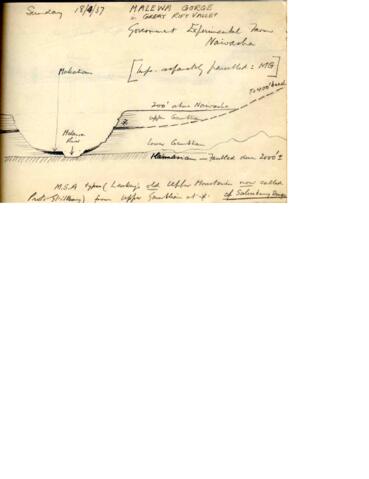 Sunday 18/4/37 MALEWA GORGE
in GREAT RIFT VALLEY
Government Experimental Farm
Naivasha
[Imps. separately parcelled = MG]
Makalian
To 400' beach
200' above Naivasha
Upper Gamblian
Malewa River
x
Lower Gamblian
Kamasian — Faulted down 2000' ±
M.S.A types (Leakey's old Upper Mousterian now called
Proto-Stillbay) from Upper Gamblian at x. cf Salisbury